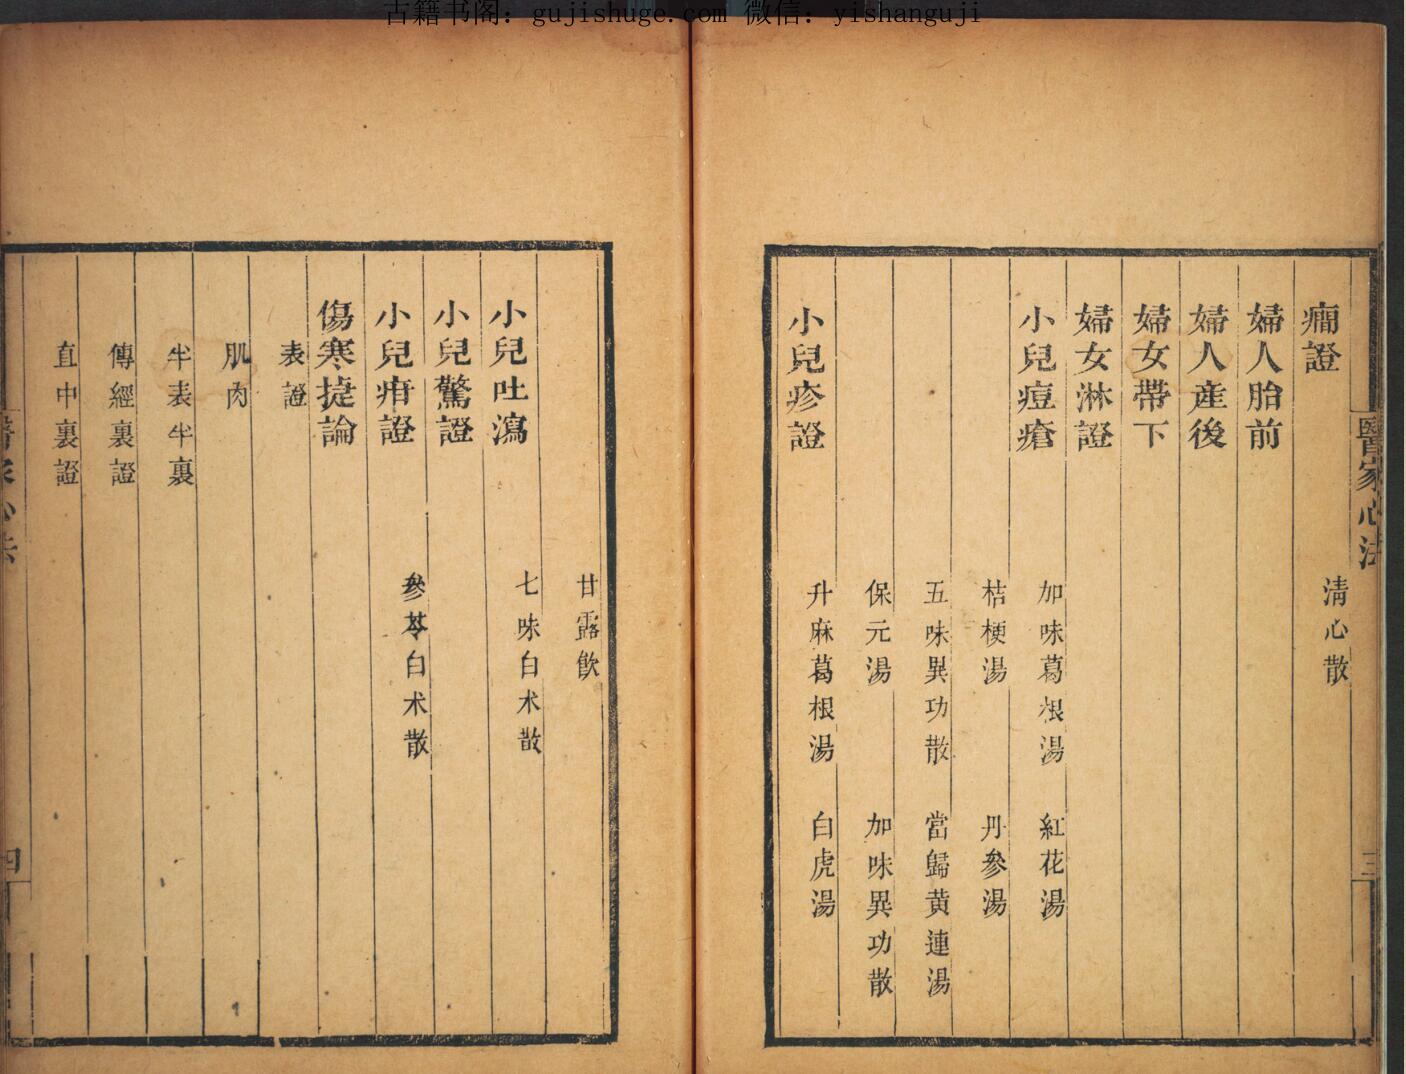 古籍书阁：gujishuge.com 微信：yishanguji
醫家心法
三
清心散
癇證
婦人胎前
婦人産後
婦女帶下
婦女淋證
小兒痘瘡
加味葛根湯 紅花湯
桔梗湯 丹參湯
五味異功散 當歸黄連湯
保元湯 加味異功散
小兒疹證
升麻葛根湯 白虎湯
甘露飲
小兒吐瀉
七味白术散
小兒驚證
小兒疳證
參苓白术散
傷寒捷論
表證
肌肉
半表半裏
傳經裏證
直中裏證
四